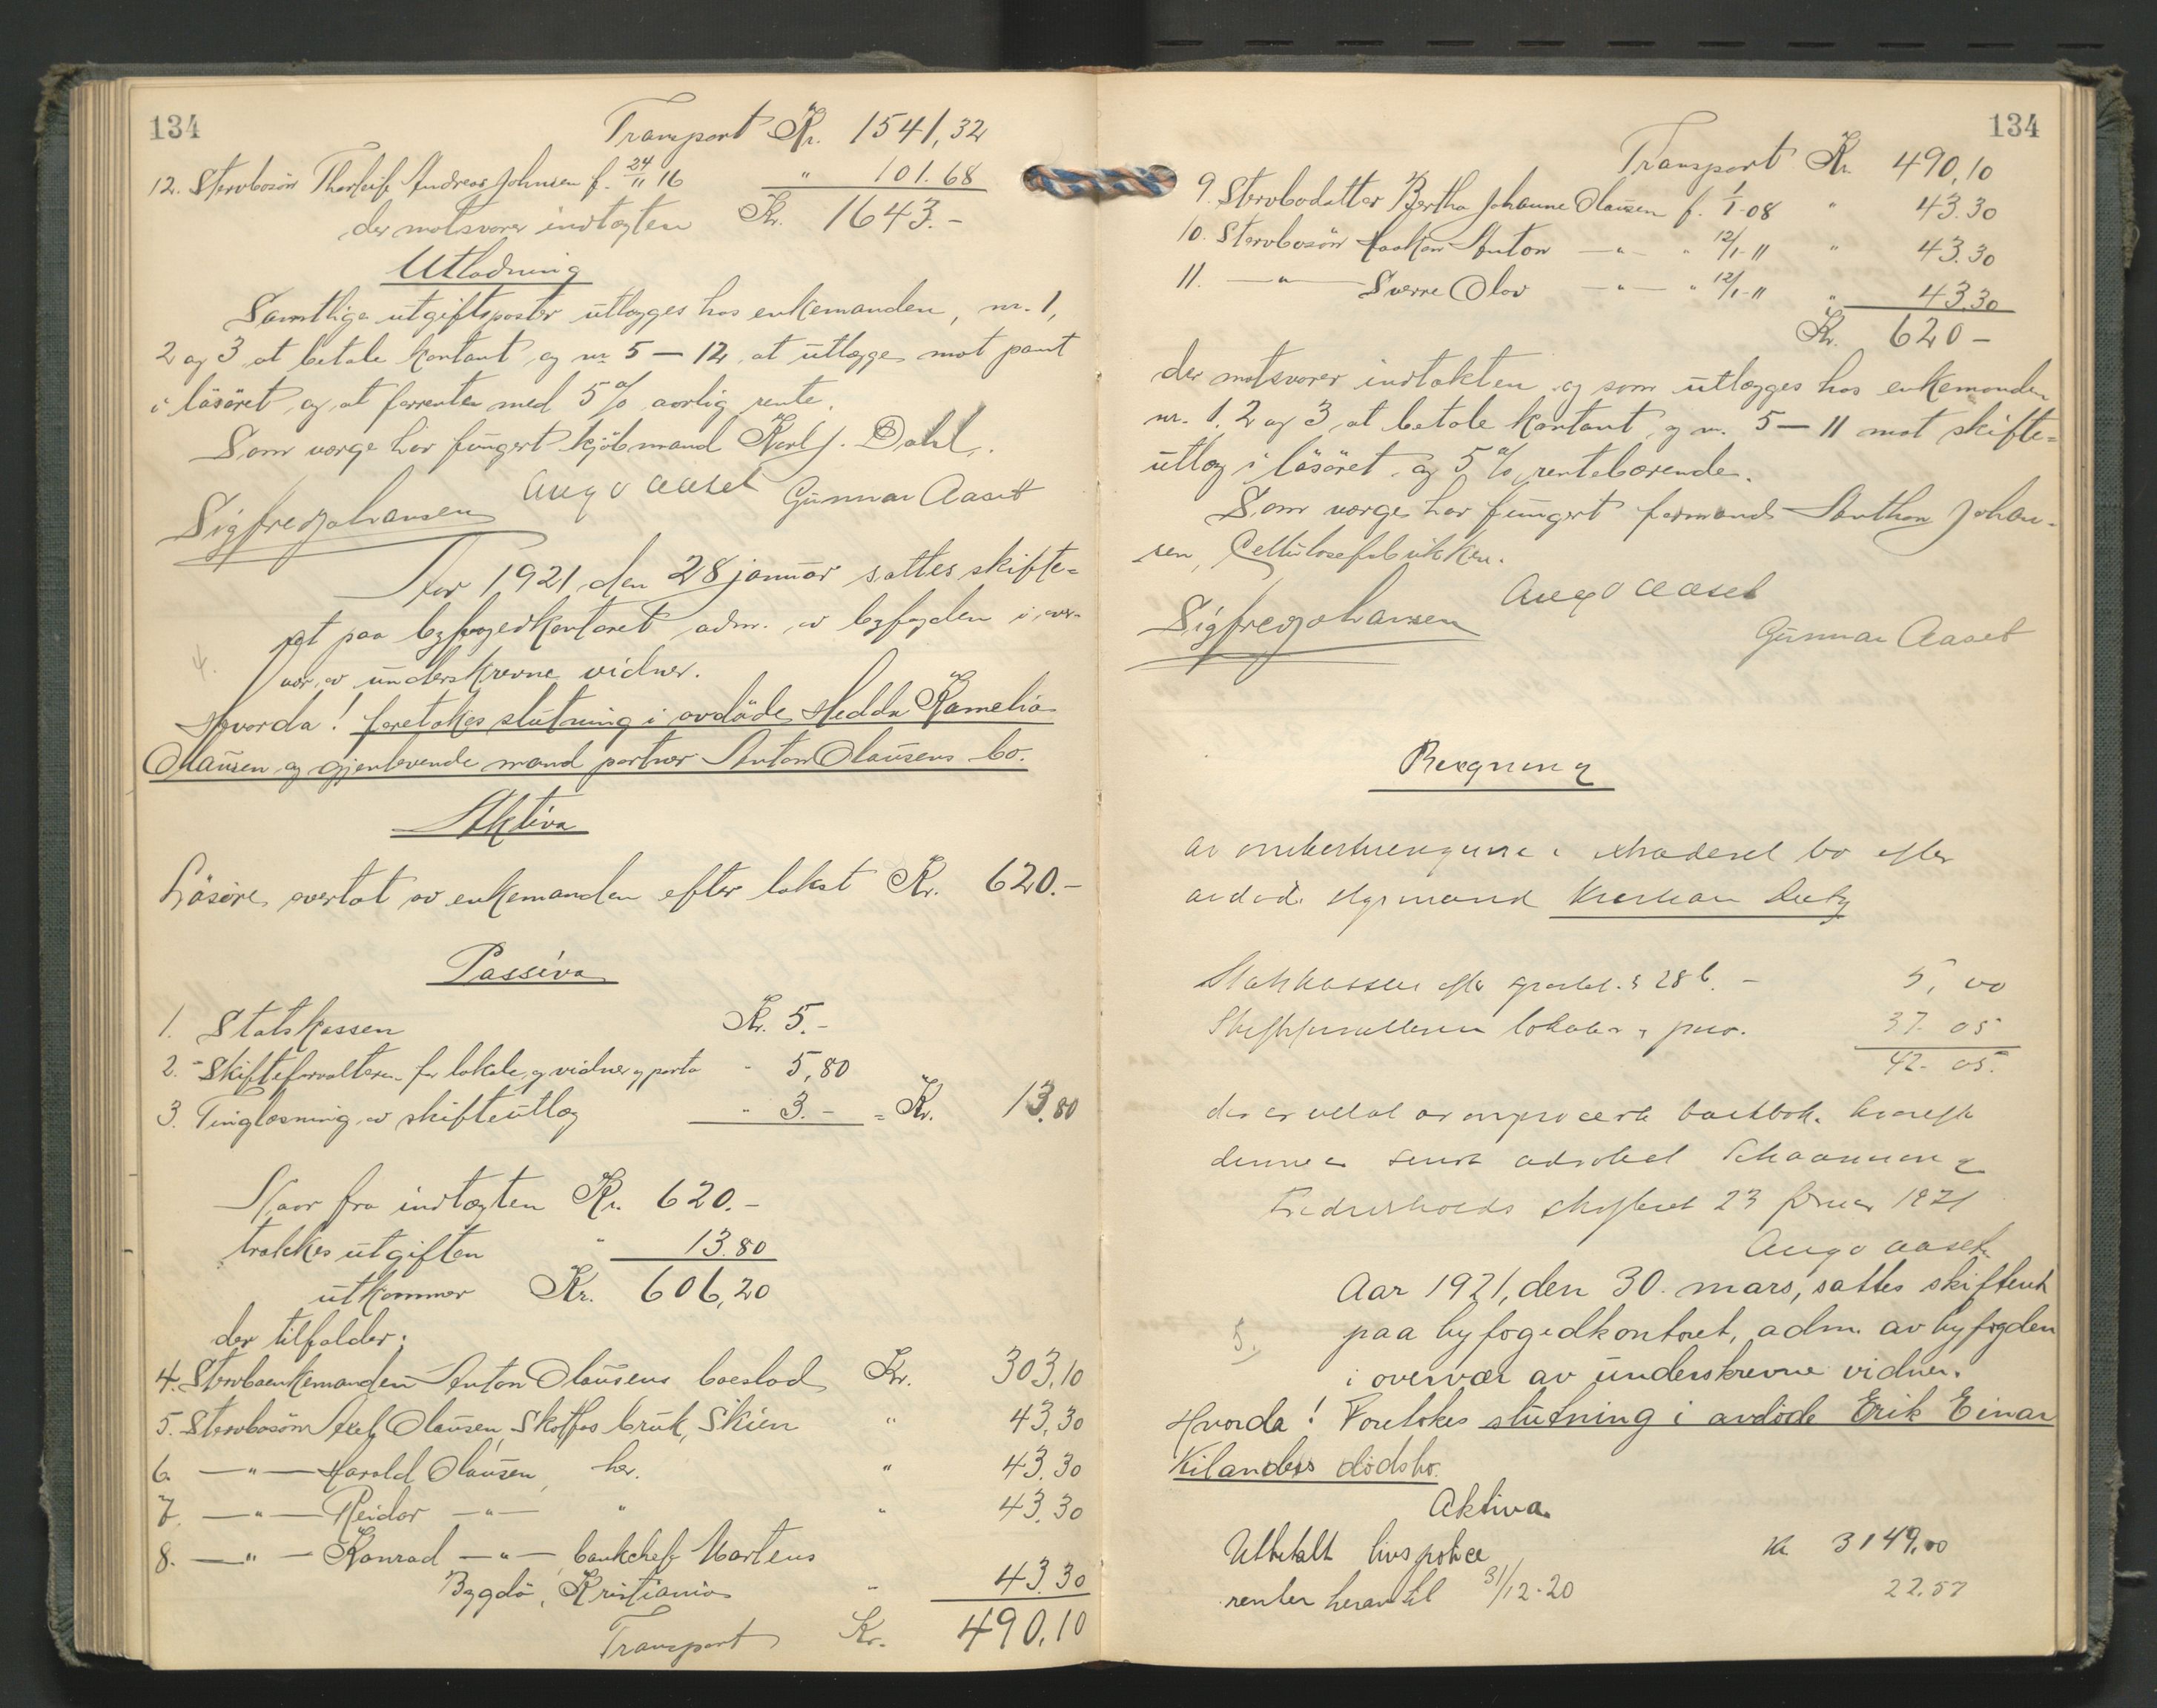 134
Transport Kr. 1541,32
12. Stervbosøn Thorleif Andreas Johnsen f. 24/11 16 " 101.68
der motsvarer indtægten Kr. 1643.-
Utlodning
Samtlige utgiftsposter utlægges hos enkemanden, nr. 1,
2 og 3 at betale kontant og nr 5 – 12 at utlægges mot pant
i løsøret og at forrente med 5 % aarlig rente.
Som værge har fungert kjøbmand Karl J. Dahl.
Sigfred Johansen Aug Aaset Gunnar Aaset
Aar 1921 den 28 januar sattes skifte=
ret paa byfogedkontoret adm. av byfogden i over-
4. vær av underskrevne vidner.
Hvorda! foretokes slutning i avdøde Hedda Kamelia
Olausen og gjenlevende mand portner Anton Olausens bo.
Aktiva
Løsøre, overtat av enkemanden efter takst Kr. 620.-
Passiva
1. Statskassen Kr. 5.-
2. Skifteforvalteren for lokale og vidner og porto " 5,80
3. Tinglæsning av skifteutlæg " 3.- = Kr. 13,80
Naar fra indtægten Kr. 620.-
trækkes utgiften " 13.80
utkommer Kr. 606,20
der tilfalder:
4. Stervboenkemanden Anton Olausens boeslod Kr. 303,10
5. Stervbosøn Axel Olausen, Skotfos bruk, Skien " 43,30
6. —"— Harald Olausen, her. " 43.30
7. —"— Reidar —"— " " 43.30
8. —"— Konrad —"— bankchef Martens
Bygdø, Kristiania " 43.30
Transport Kr. 490,10
134
Transport Kr. 490,10
9. Stervbodatter Bertha Johanne Olausen f. 1/1-08 " 43.30
10. Stervbosøn Haakon Anton —"— " 12/1-11 " 43.30
11. —"— Sverre Olav —"— " 12/1-11 " 43.30
Kr. 620-
der motsvarer indtækten og som utlægges hos enkemanden
nr. 1, 2 og 3 at betale kontant og nr. 5 – 11 mot skifte=
utlæg i løsøret og 5 % rentebærende.
Som værge har fungert formand Anthon Johan-
sen, Cellulosefabrikken.
Sigfred Johansen Aug Aaset
Gunnar Aaset
Regning
av i bo efter
avdøde
Statskassen efter § 28 b. - 5,00
Skifteforvalteren lokaler og 37.05
42.05.
der er av bankbok. hvorefter
denne er sendt
Fredriksholds skifteret 23 februar 1921
Aug Aaset
Aar 1921, den 30. mars, sattes skifteret
5. paa byfogedkontoret, adm. av byfogden
i overvær av underskrevne vidner.
Hvorda! Foretokes slutning i avdøde Erik Einar
Kilanders dødsbo.
Aktiva.
Utbetalt livspolice kr 3149,00
renter herav til 31/12-20 22.57